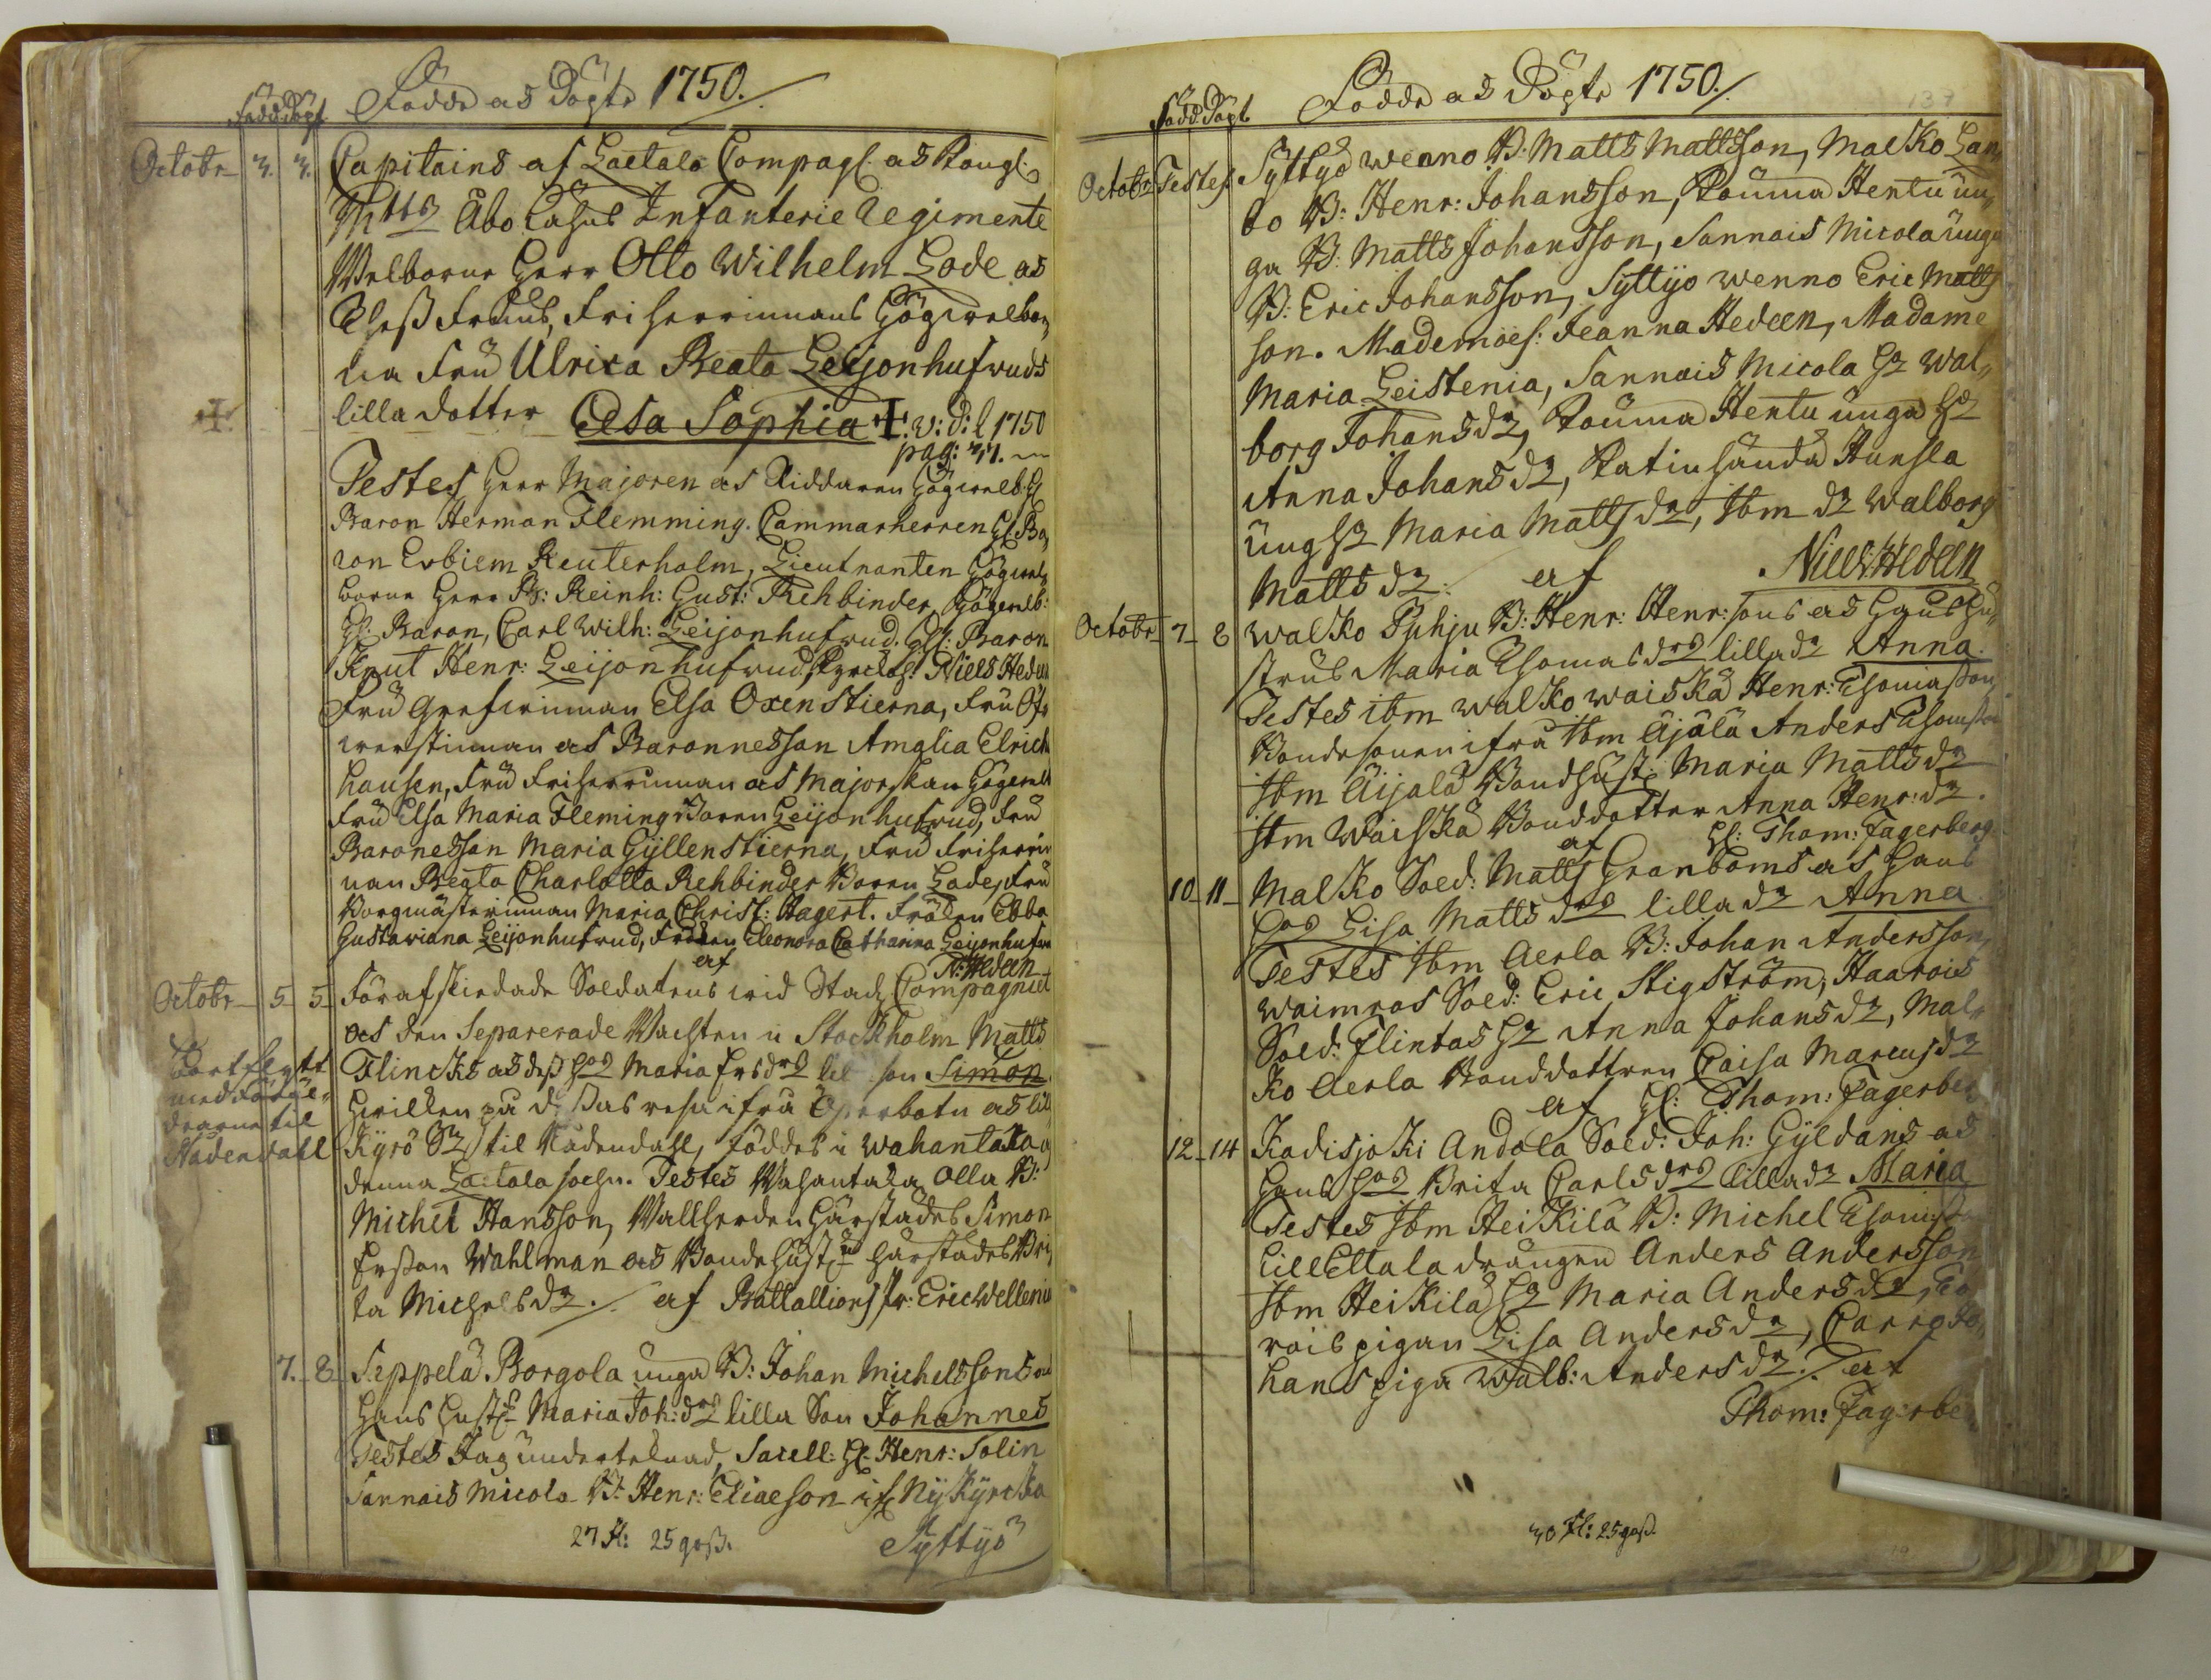 Född Döpt Födde och Döpte 1750.
Octobr 3. 3. Capitains af Laetala Compagl. och Kongl.
Mtts Åbo Lähns Infanterie Regimente
Welborne Herr Otto Wilhelm Lode och
Dess Fruus, Friherrinnans Högwelbor,
na Fru Ulrica Beata Leijonhufwuds
lilla dotter Elsa Sophia ✝. v: d: l 1750
pag: 77.
Testes Herr Majoren och Riddaren Högwelb. H.
Baron Herman Flemming. Cammarherren H. Ba,
ron Esbiem Reuterholm, Lieutnanten Högwel,
borne Herr B: Reinh: Gust: Rehbinder, Högwelb:
H: Baron, Carl Wilh: Leijonhufwud. H: Baron
Knut Henr: Leijonhufwud, Niels Hedeen
Fru Grefwinnan Elsa Oxenstierna, Fru Öf,
werstinnan och Baronnessan Amalia Elrich
hausen, Fru Friherrinnan och Majorskan Högwelb
Fru Elsa Maria Fleming Boren Leijonhufwud, Fru
Baronessan Maria Gyllenstierna, Fru Friherrin
nan Beata Charlotta Rehbinder Boren Lode, Fru
Borgmästerinnan Maria Christ: Hagert. Fröken Ebba
Gustaviana Leijonhufwud, Fröken Eleonora Catharina Leijonhufw
af N: Hedeen
Octobr 5 5 Förafskiedade Soldatens wid Stads Compagniet
och den Separerade Wachten i Stockholm Matts
Bortflytt Flincks och dess hos Maria Ersdrs lil son Simon
med Föräl, Hwilken på deras resa ifrå Österbotn och lill
drarne til Kyrö Sn til Nådendahl, föddes i Wahantaka
Nådendahl denna Laitala sochn. Testes Wahantaka Olla B:
Michel Hansson, Wallherden härstädes Simon
Ersson Wahlman och Bondehust: härstädes Bri,
ta Michelsdr. af Battallions Pr: Eric Wellenius
7. 8 Seppelä Borgola unga B: Johan Michelssons och
Hans Hust: Maria Joh:drs lilla Son Johannes
Testes Jag underteknad, Sacell: H: Henr: Solin
Sannais Micola B: Henr: Eliaeson if Nykyrcka
27 fl: 25 goss. Syttyö
Född Döpt Födde och Döpte 1750. 137
Octobr Testes Syttyö wenno B: Matts Mattsson, Malko Lam,
bo B: Henr: Johansson, Kouma Hentu un,
ga B: Matts Johansson, Sannais Micola unga
B: Eric Johansson, Syttyö wenno Eric Matts
son. Mademoes: Jeanna Hedeen, Madame
Maria Leistenia, Sannais Micola H. Wal,
borg Johansdr, Kouma Hentu unga H.
Anna Johansdr, Katinhändä Hunsla
ung H. Maria Mattsdr, Ibm dr Walborg
Mattsdr. af Niels Hedeen
Octobr 7 8 Walko Puhju B: Henr: Henr:sons och Hans Hu,
strus Maria Thomasdrs lilla dr Anna.
Testes ibm Walko Waiska Henr: Thomasson
Bondesonen ifrå Ibm Äjälä Anders Thomson
Ibm Äijälä Bondhust: Maria Mattsdr
Ibm Waiska Bonddotter Anna Henr:dr.
af H: Thom: Fagerberg.
10 11 Malko Sold: Matts Granboms och Hans
Hos Lisa Mattsdrs lilla dr Anna.
Testes Ibm Aerla B: Johan Andersson,
Waimros Sold: Eric Stigström, Haarois
Sold: Flintas H. Anna Johansdr, Mal,
ko Aerla Bonddottren Caisa Marcusdr
af H: Thom: Fagerberg
12 14 Kadisjoki Andola Sold: Joh: Gyldans och
Hans Hos Brita Carlsdrs lilla dr Maria
Testes Ibm Heikilä B: Michel Thomisson
Lill Ettala drängen Anders Andersson
Ibm Heikilä H. Maria Andersdr,
rois pigan Lisa Andersdr, Carr
hans piga Walb: Andersdr. af
Thom: Fagerbe
30 fl: 25 goss.